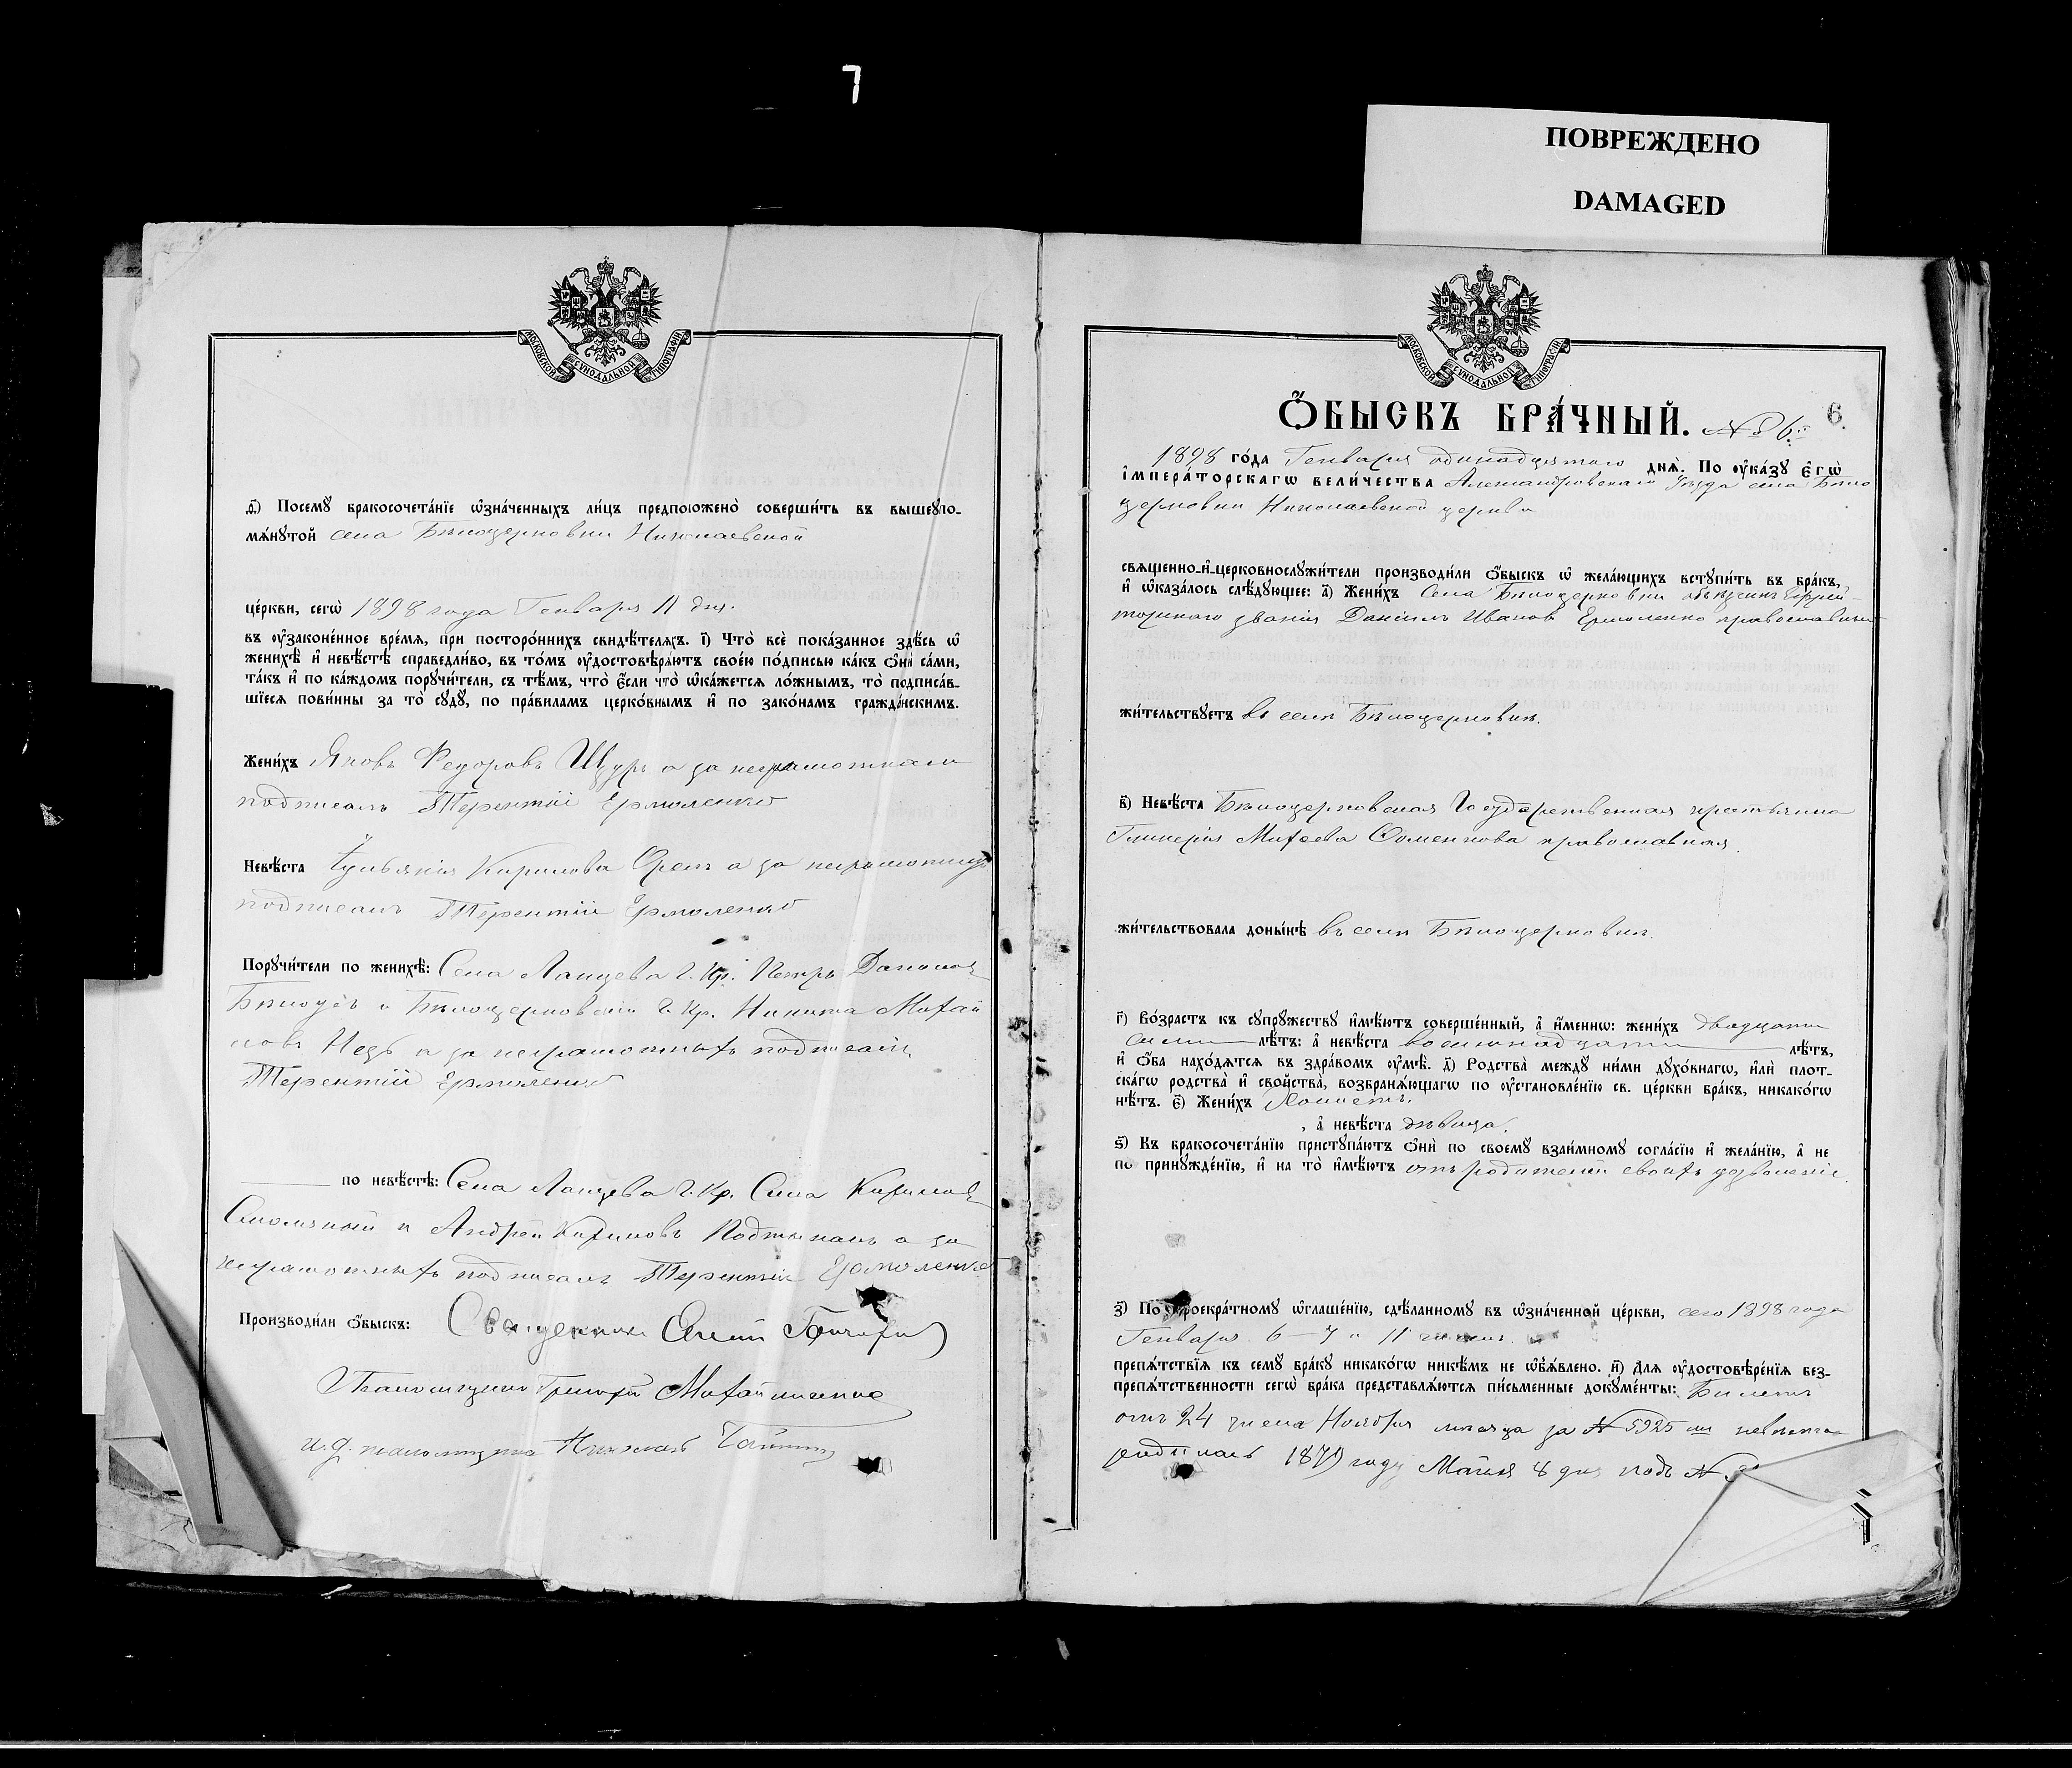 7
ПОВРЕЖДЕНО
DAMAGED
МОСКОВСКОЙ СѴНОДАЛЬНОЙ ТИПОГРАФІИ
д҃) Посемꙋ бракосочета́нїе ѡ҆зна́ченныхъ ли́цъ предположено̀ соверши́ть въ вышеꙋпо-
мѧ́нꙋтой села Бѣлоцерковки Николаевской
це́ркви, сегѡ̀ 1898 года Генваря 11 дня.
въ ᲂу҆зако́не́нное вре́мѧ, при посторо́ннихъ свидѣ́телѧхъ. і҃) Что̀ всѐ пока́занное здѣ́сь ѡ҆
женихѣ̀ и҆ невѣ́стѣ справедли́во, въ то́мъ ᲂу҆достовѣрѧ́ютъ свое́ю по́дписью ка́къ ѻ҆нѝ са́ми,
та́къ и҆ по ка́ждомъ порꙋчи́тели, съ тѣ́мъ, что̀ є҆́сли что̀ ѡ҆ка́жетсѧ ло́жнымъ, то̀ подписа́в-
шїесѧ пови́нны за то̀ сꙋдꙋ̀, по пра́виламъ церко́внымъ и҆ по зако́намъ гражда́нскимъ.
Жени́хъ Яковъ Федоровъ Щуръ а за неграмотнаго
подписалъ Терентій Ермоленко
Невѣ́ста Ѹульянія Кирилова Орелъ а за неграмотную
подписалъ Терентій Ермоленко
Порꙋчи́тели по женихѣ̀: Села Ланцева Г. Кр. Петръ Данилов
и Бѣлоцерковскій Г. Кр. Никита Михай
ловъ а за неграмотныхъ подписалъ
Терентій Ермоленко
по невѣ́стѣ: Села Ланцева Г. Кр. Сила Кирилов
и Андрей Кириловъ а за
неграмотныхъ подписалъ Терентій Ермоленко
Производи́ли ѻ҆́быскъ: Священникъ
Псаломщикъ Григорій Михайличенко
и. д. псаломщика Николай
Ѻ҆́БЫСКЪ БРА́ЧНЫЙ. № 6й 6.
1898 го́да Генваря одинадцятого днѧ̀. По ᲂу҆ка́зꙋ є҆гѡ̀
і҆мпера́торскагѡ вели́чества Александровскаго Уѣзда села Бѣло
церковки Николаевской церкви
свѧще́нно-и҆-церковнослꙋжи́тели производи́ли ѻ҆́быскъ ѡ҆ жела́ющихъ встꙋпи́ть въ бра́къ,
и҆ ѡ҆каза́лось слѣ́дꙋющее: а҃) Жени́хъ Села Бѣлоцерковки
званія Даніилъ Ивановъ Ермоленко православный
жи́тельствꙋетъ въ селѣ Бѣлоцерковкѣ.
в҃) Невѣ́ста Бѣлоцерковская Государственная крестьянка
Гликерія Михеева Соменкова православная.
жи́тельствовала доны́нѣ въ селѣ Бѣлоцерковкѣ.
г҃) Во́зрастъ къ сꙋпрꙋ́жествꙋ и҆мѣ́ютъ соверше́нный, а҆ и҆́меннѡ: жени́хъ двадцати
семи лѣ́тъ: а҆ невѣ́ста восемнадцати лѣ́тъ,
и҆ ѻ҆́ба нахо́дѧтсѧ въ здра́вомъ ᲂу҆мѣ̀. д҃) Родства̀ междꙋ̀ ни́ми дꙋхо́внагѡ, и҆лѝ плот-
ска́гѡ родства̀ и҆ сво́йства, возбранѧ́ющагѡ по ᲂу҆становле́нїю св. це́ркви бра́къ, никако́гѡ
нѣ́тъ. є҃) Жени́хъ Холостъ.
, а҆ невѣ́ста дѣвица.
ѕ҃) Къ бракосочета́нїю пристꙋпа́ютъ ѻ҆нѝ по своемꙋ̀ взаи́мномꙋ согла́сїю и҆ жела́нїю, а҆ не
по принꙋжде́нїю, и҆ на то̀ и҆мѣ́ютъ отъ родителей своихъ дозволеніе.
з҃) По троекра́тномꙋ ѡ҆глаше́нїю, сдѣ́ланномꙋ въ ѡ҆зна́ченной це́ркви, сего 1898 года
Генваря 6 – 7 и 11 чиселъ.
препѧ́тствїѧ къ семꙋ̀ бра́кꙋ никако́гѡ никѣ́мъ не ѡ҆б̾ѧ́влено. и҃) Для ᲂу҆достовѣре́нїѧ без-
препѧ́тственности сегѡ̀ бра́ка представлѧ́ютсѧ пи́сьменные докꙋме́нты: Билетъ
отъ 24 числа Ноября мѣсяца за № 5925
родилась 1879 году Маія 8 дня подъ №